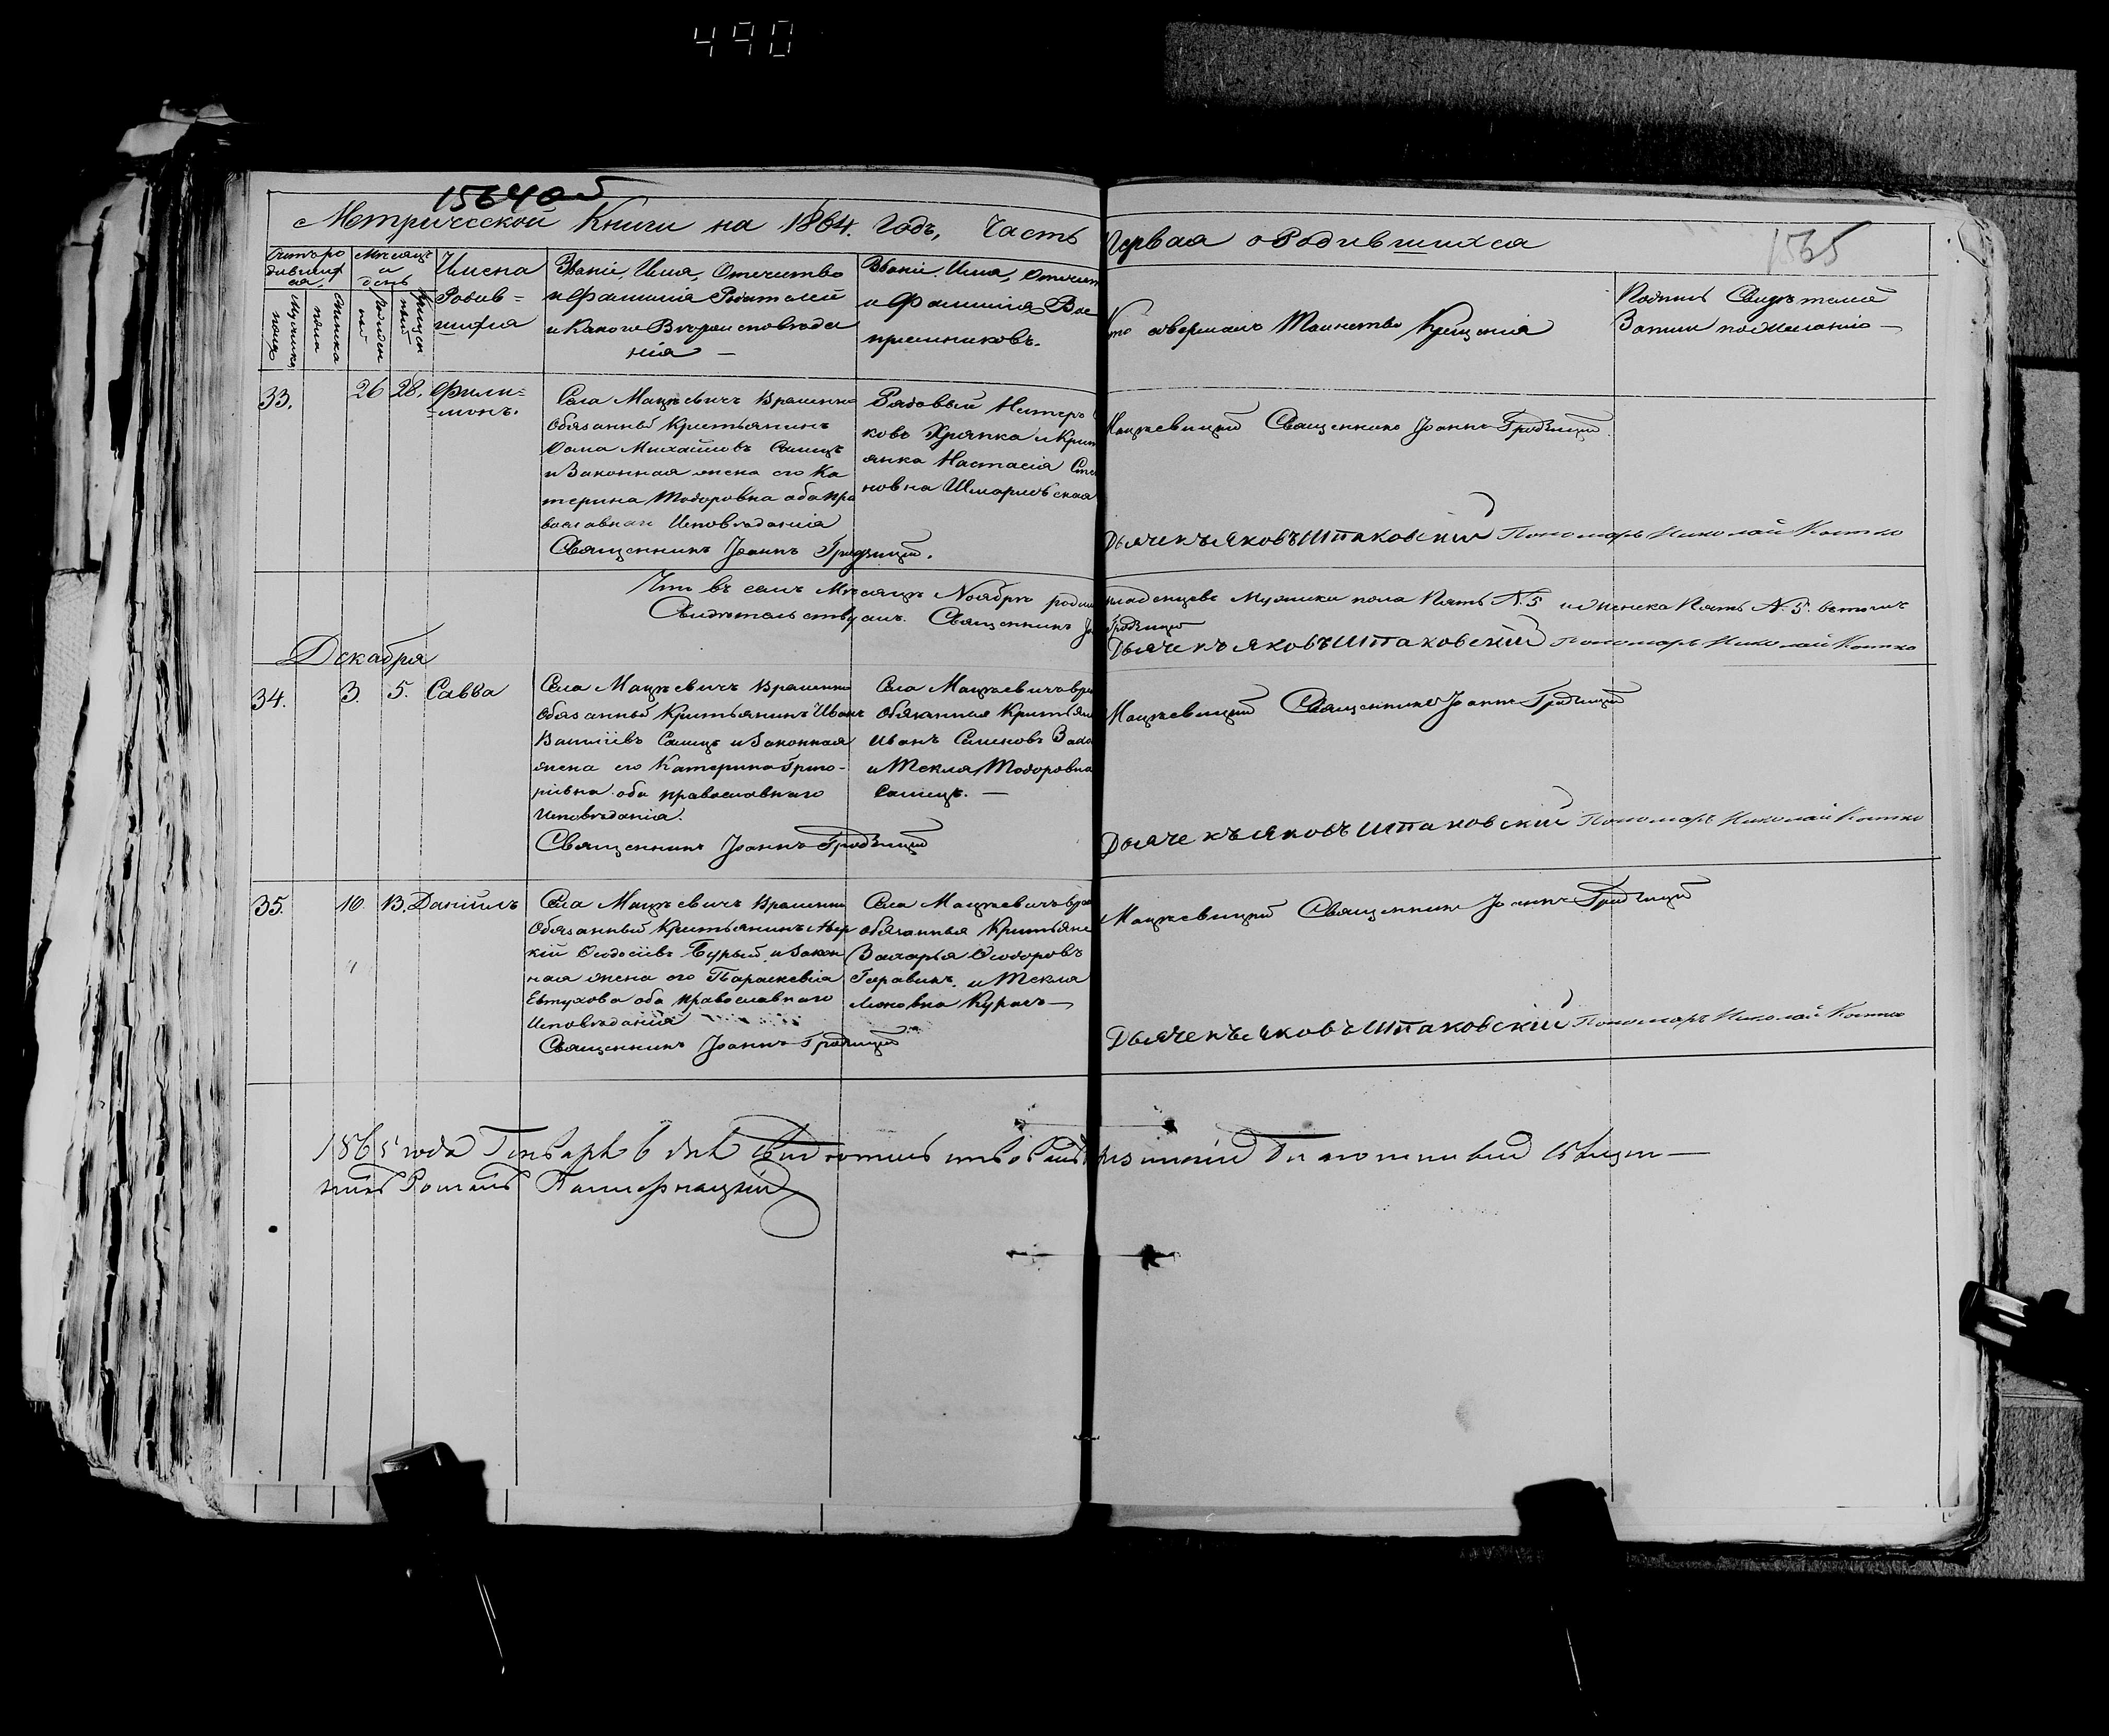 490
1564 об
1565
Метрической Книги на 1864. годъ, Часть Первая о Родившихся
Счетъ родившихся
Мужска пола
Женска пола
Мѣсяцъ и день
Рожденій
Крещеній
Имена
Родив=
шихся
Званіе, Имя, Отчество
и Фамилія Родителей
и Какого Вѣроисповѣда
нія —
Званіе, Имя, Отчест
и Фамилія Вос
пріемниковъ.
Кто совершалъ Таинство Крещенія
Подпись Свидѣтелей
Записи по Желанію —
33.
26
28.
Фили=
=монъ.
Села Мацѣевичъ Временно
Обязанный Крестьянинъ
Ѳома Михайловъ
и Законная жена его Ка
терина Тодоровна оба пра
вославнаго Исповѣданія
Священникъ Іоаннъ Гродзицкій.
Рядовый Нестеръ
ковъ Хряпка и Крест
янка Настасія Сте
новна
Мацѣевицкій Священникъ Іоаннъ Гродзицкій.
Дьячекъ Яковъ Шпаковскій Пономарь Николай Костко
Что въ семъ Мѣсяцѣ Ноябрѣ родил младенцевъ Мужска пола Пять №.5 и женска Пять №.5. въ томъ
Свидѣтельствуемъ. Священникъ Іо Гродзицкій
Дьячекъ Яковъ Шпаковскій Пономарь Николай Костко
Декабря
34.
3.
5.
Савва
Села Мацѣевичъ Временно
Обязанный Крестьянинъ Иванъ
и Законная
жена его Катерина Григо-
ріевна оба православнаго
Исповѣданія.
Священникъ Іоаннъ Гродзицкій
Села Мацѣевичъ вре
Обязанныя Крестьян
Иванъ Семеновъ
и Текля Тодоровна
Мацѣевицкій Священникъ Іоаннъ Гродзицкій
Дьячекъ Яковъ Шпаковскій Пономарь Николай Костко
35.
10.
13.
Даніилъ
Села Мацѣевичъ Временно
Обязанный Крестьянинъ Авер
кій Ѳеодосіевъ Бурый, и Закон
ная жена его Параскевія
Евтухова оба православнаго
Исповѣданія
Священникъ Іоаннъ Гродзицкій
Села Мацѣевичъ вре
обязанныя Крестьяне
Захарья Ѳеодоровъ
и Текля
Курась —
Мацѣевицкій Священникъ Іоаннъ Гродзицкій
Дьячекъ Яковъ Шпаковскій Пономарь Николай Костко
1865 года Генваря 6 дня Благочинный Священ—
никъ Романъ